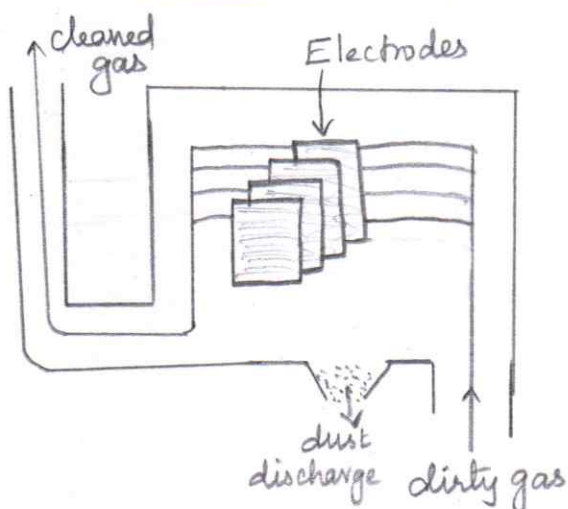 cleaned
gas
Electrodes
dust
discharge
dirty gas